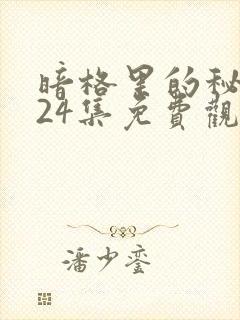 暗格里的秘
24集免費觀
潘少銮